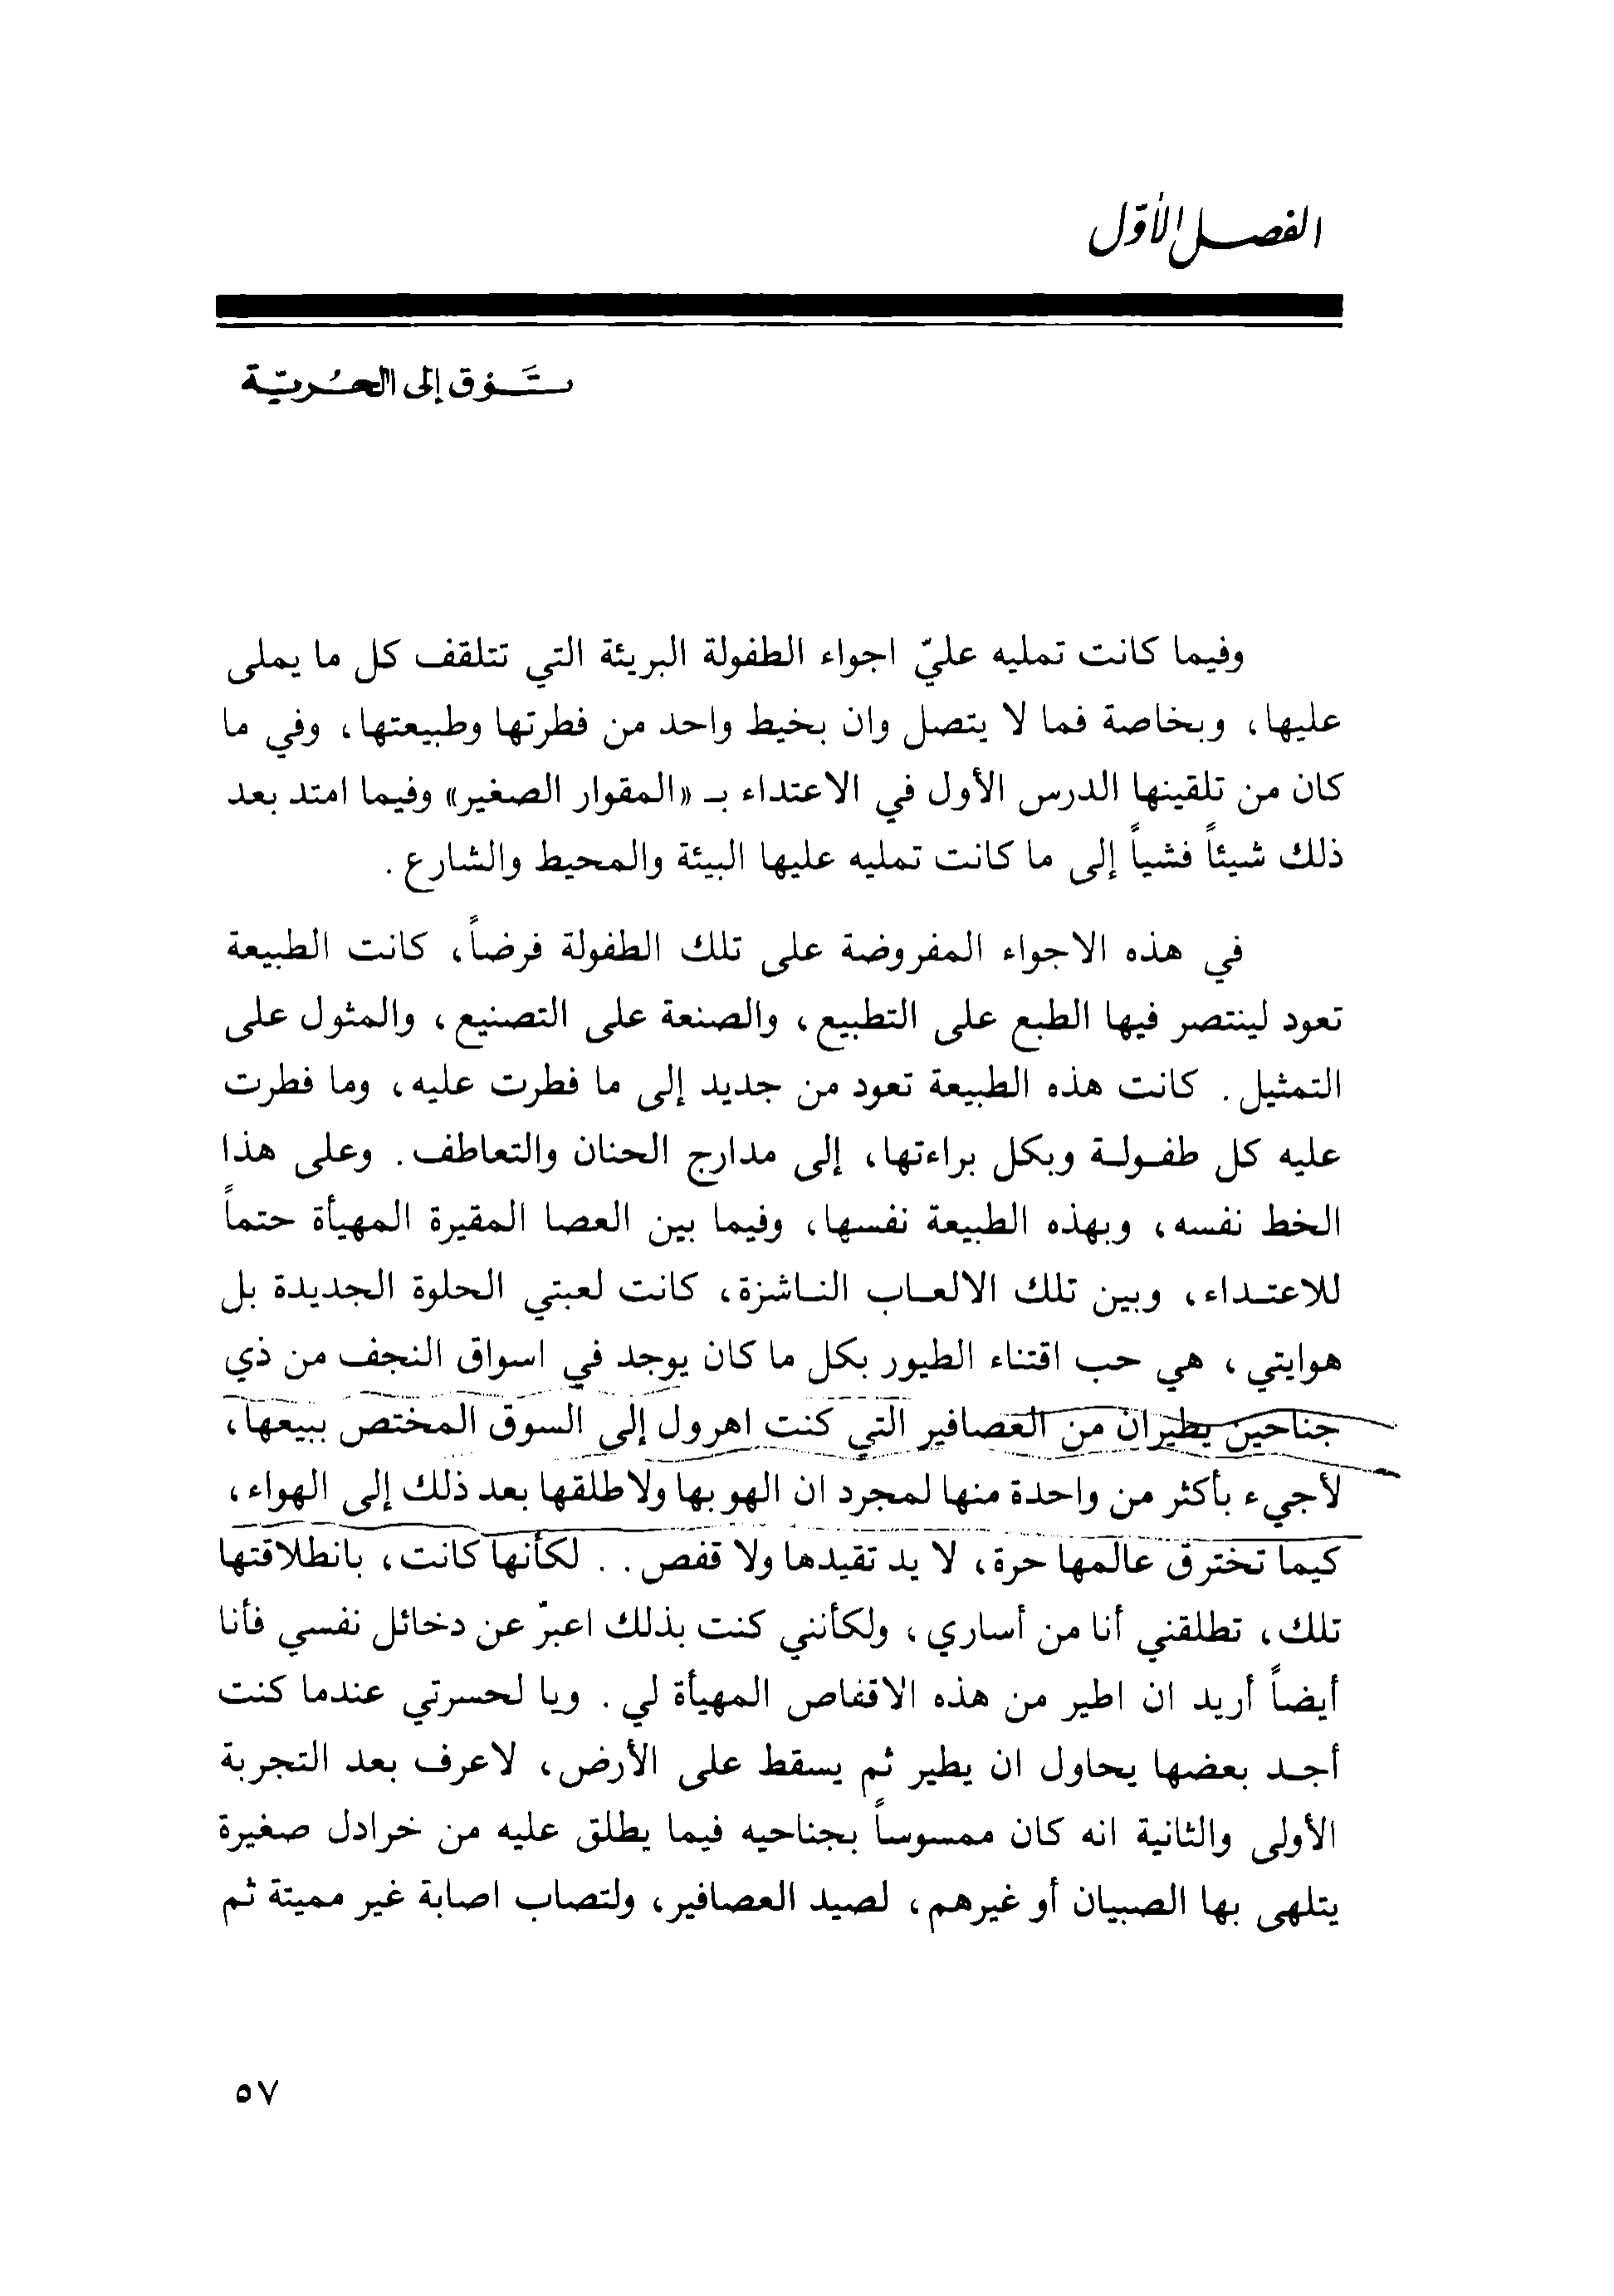 الفصل الأوّل
تَوق إلى الحُريّة
وفيما كانت تمليه عليّ اجواء الطفولة البريئة التي تتلقف كل ما يملى
عليها، وبخاصة فما لا يتصل وان بخيط واحد من فطرتها وطبيعتها، وفي ما
كان من تلقينها الدرس الأول في الاعتداء بـ «المقوار الصغير» وفيما امتد بعد
ذلك شيئاً فشياً إلى ما كانت تمليه عليها البيئة والمحيط والشارع.
في هذه الاجواء المفروضة على تلك الطفولة فرضاً، كانت الطبيعة
تعود لينتصر فيها الطبع على التطبيع، والصنعة على التصنيع، والمثول على
التمثيل. كانت هذه الطبيعة تعود من جديد إلى ما فطرت عليه، وما فطرت
عليه كل طفولة وبكل براءتها، إلى مدارج الحنان والتعاطف. وعلى هذا
الخط نفسه، وبهذه الطبيعة نفسها، وفيما بين العصا المقيرة المهيأة حتماً
للاعتداء، وبين تلك الالعاب الناشزة، كانت لعبتي الحلوة الجديدة بل
هوايتي، هي حب اقتناء الطيور بكل ما كان يوجد في اسواق النجف من ذي
جناحين يطيران من العصافير التي كنت اهرول إلى السوق المختص ببيعها،
لأجيء بأكثر من واحدة منها لمجرد ان الهو بها ولاطلقها بعد ذلك إلى الهواء،
كيما تخترق عالمها حرة، لا يد تقيدها ولا قفص.. لكأنها كانت، بانطلاقتها
تلك، تطلقني أنا من أساري، ولكأنني كنت بذلك اعبرّ عن دخائل نفسي فأنا
أيضاً أريد ان اطير من هذه الاقفاص المهيأة لي. ويا لحسرتي عندما كنت
أجد بعضها يحاول ان يطير ثم يسقط على الأرض، لاعرف بعد التجربة
الأولى والثانية انه كان ممسوساً بجناحيه فيما يطلق عليه من خرادل صغيرة
يتلهى بها الصبيان أو غيرهم، لصيد العصافير، ولتصاب اصابة غير مميتة ثم
٥٧